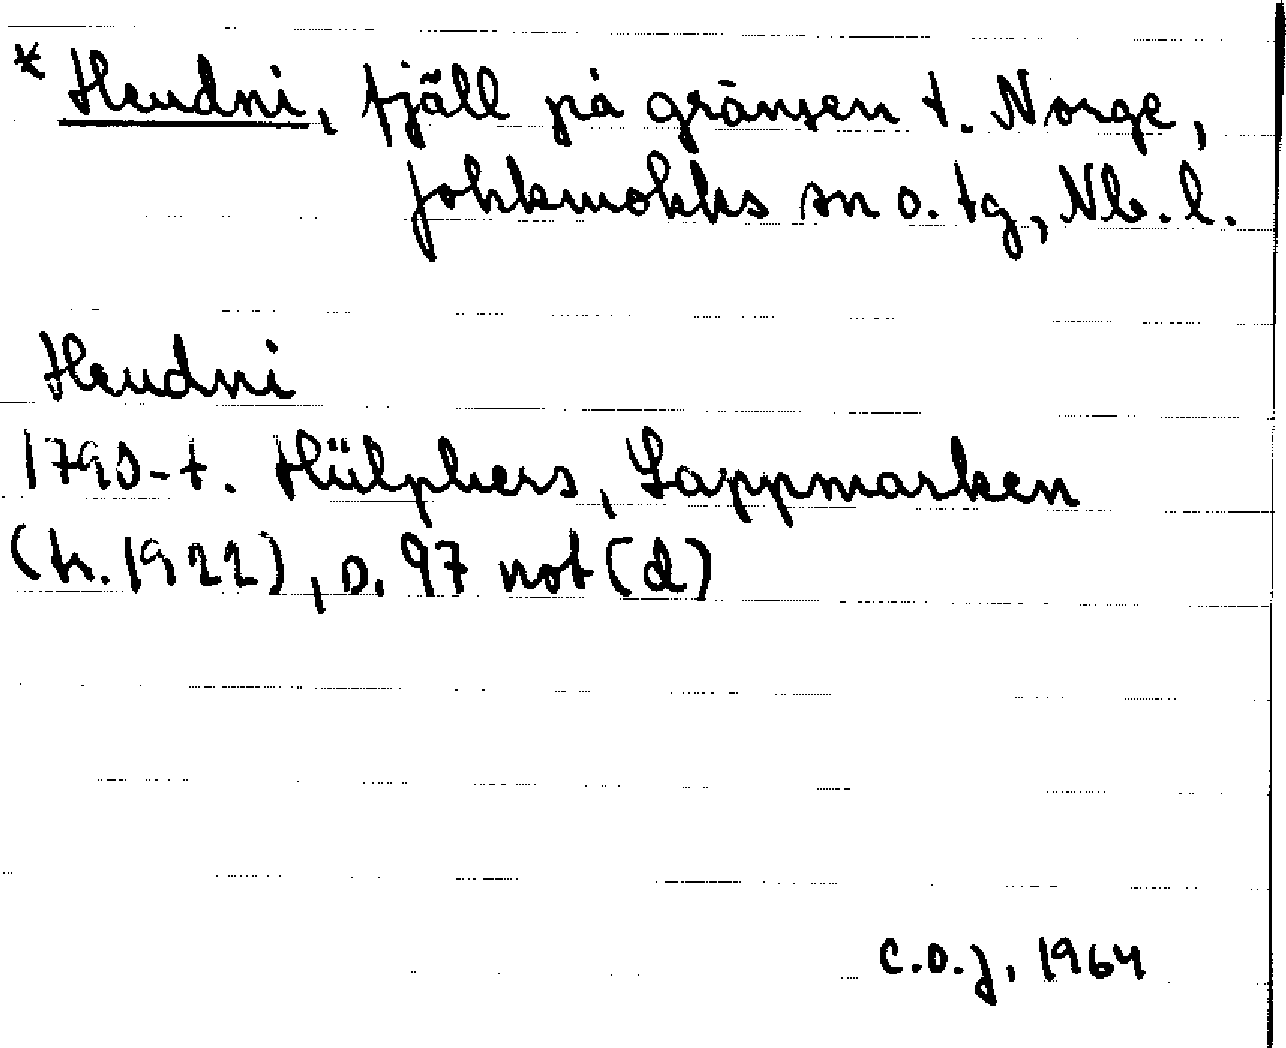 * Heudni, fjäll på gränsen t. Norge,
Jokkmokks sn o. tg, Nb. l.
Heudni
1790-t. Hülphers, Lappmarken
(tr. 1922), s. 97 not (d)
C.O.J, 1964